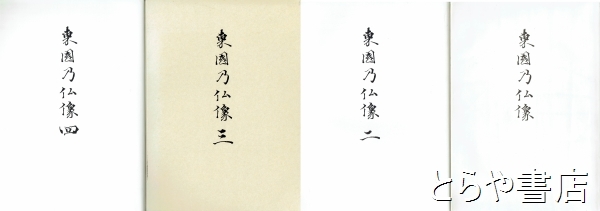 東國乃仏像四
東國乃仏像三
東國乃仏像二
東國乃仏像
とらや書店